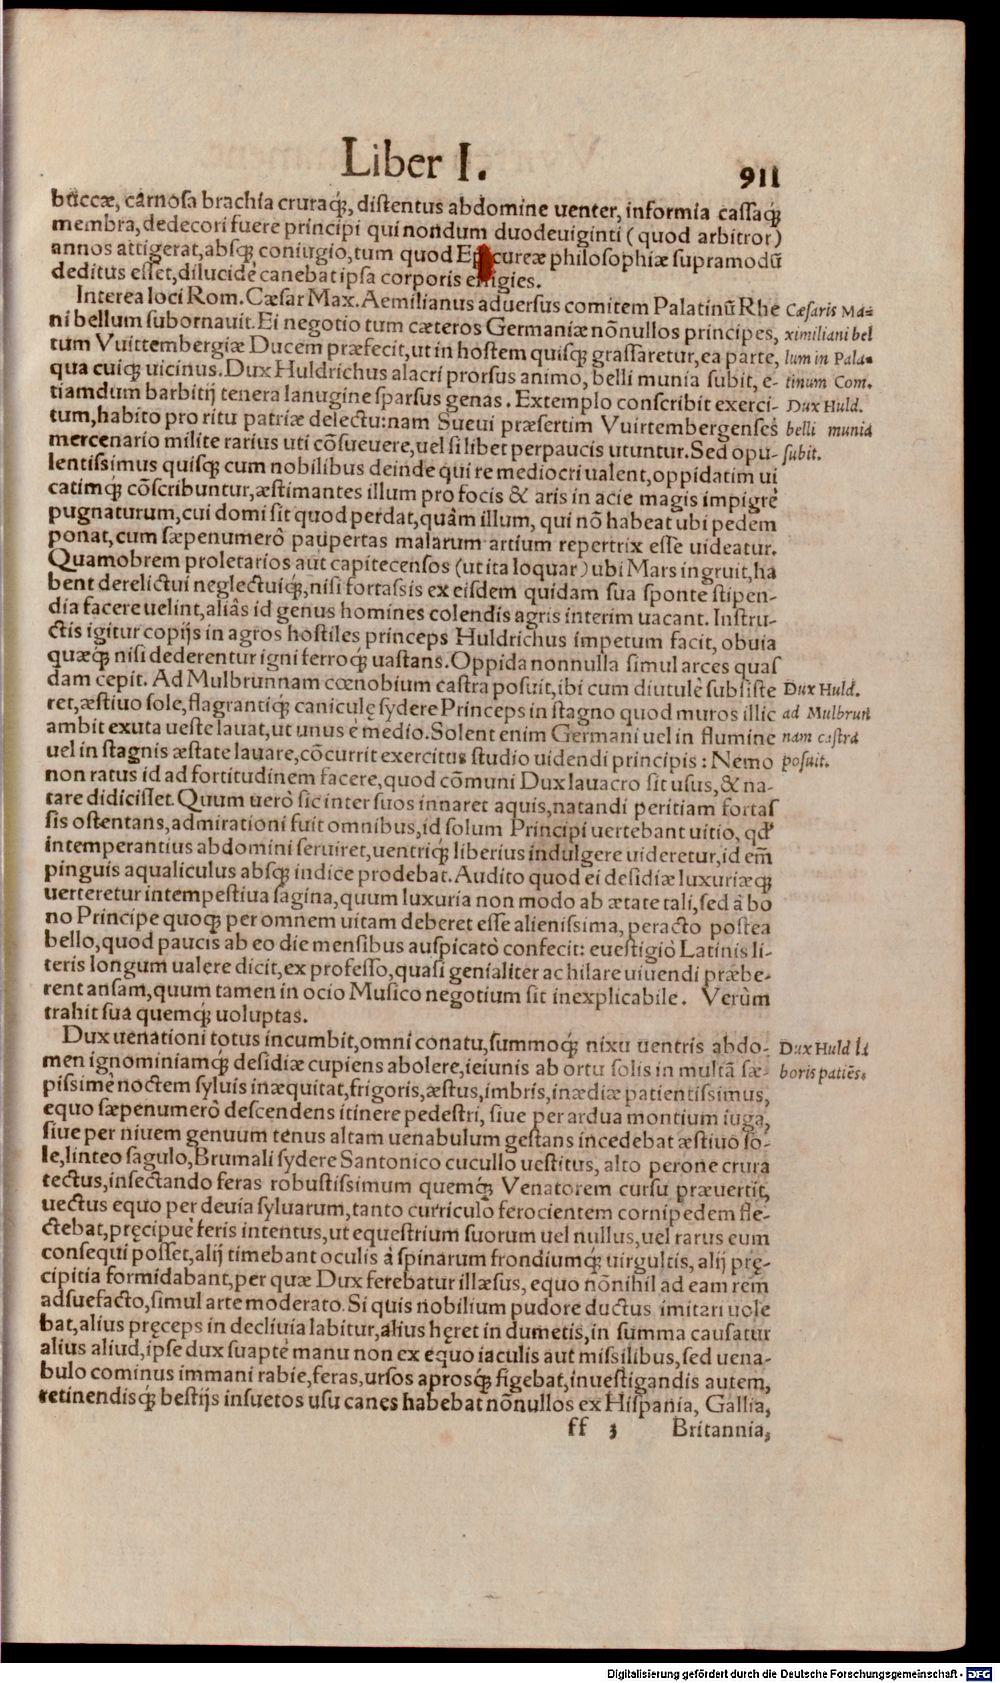 Liber I. 911
buccæ, carnosa brachia cruraq́;, distentus abdomine uenter, informia cassaq́;
membra, dedecori fuere principi qui nondum duodeuiginti (quod arbitror)
annos attigerat, absq; coniugio, tum quod Epicureæ philosophiæ supramodū
deditus esset, dilucidè canebat ipsa corporis effigies.
Interea loci Rom. Cæsar Max. Aemilianus aduersus comitem Palatinū Rhe
ni bellum subornauit. Ei negotio tum cæteros Germaniæ nōnullos principes,
tum Vuittembergiæ Ducem præfecit, ut in hostem quisq; grassaretur, ea parte,
qua cuiq; uicinus. Dux Huldrichus alacri prorsus animo, belli munia subit, e-
tiamdum barbitij tenera lanugine sparsus genas. Extemplo conscribit exerci-
tum, habito pro ritu patriæ delectu: nam Sueui præsertim Vuirtembergenses
mercenario milite rarius uti cōsueuere, uel si libet perpaucis utuntur. Sed opu-
lentissimus quisq; cum nobilibus deinde qui re mediocri ualent, oppidatim ui
catimq́; cōscribuntur, æstimantes illum pro focis & aris in acie magis impigrè
pugnaturum, cui domi sit quod perdat, quàm illum, qui nō habeat ubi pedem
ponat, cum sæpenumerò paupertas malarum artium repertrix esse uideatur.
Quamobrem proletarios aut capitecensos (ut ita loquar) ubi Mars ingruit, ha
bent derelictui neglectuiq́;, nisi fortassis ex eisdem quidam sua sponte stipen-
dia facere uelint, aliâs id genus homines colendis agris interim uacant. Instru-
ctis igitur copijs in agros hostiles princeps Huldrichus impetum facit, obuia
quæq́; nisi dederentur igni ferroq́; uastans. Oppida nonnulla simul arces quas
dam cepit. Ad Mulbrunnam cœnobium castra posuit, ibi cum diutulè subsiste
ret, æstiuo sole, flagrantiq́; caniculę sydere Princeps in stagno quod muros illic
ambit exuta ueste lauat, ut unus è medio. Solent enim Germani uel in flumine
uel in stagnis æstate lauare, cōcurrit exercitus studio uidendi principis: Nemo
non ratus id ad fortitudinem facere, quod cōmuni Dux lauacro sit usus, & na-
tare didicisset. Quum uerò sic inter suos innaret aquis, natandi peritiam fortas
sis ostentans, admirationi fuit omnibus, id solum Principi uertebant uitio, qd'
intemperantius abdomini seruiret, uentriq́; liberius indulgere uideretur, id em̄
pinguis aqualiculus absq; indice prodebat. Audito quod ei desidiæ luxuriæq́;
uerteretur intempestiua sagina, quum luxuria non modo ab ætate tali, sed à bo
no Principe quoq; per omnem uitam deberet esse alienissima, peracto postea
bello, quod paucis ab eo die mensibus auspicatò confecit: euestigiò Latinis li-
teris longum ualere dicit, ex professo, quasi genialiter ac hilare uiuendi præbe-
rent ansam, quum tamen in ocio Musico negotium sit inexplicabile. Verùm
trahit sua quemq́; uoluptas.
Dux uenationi totus incumbit, omni conatu, summoq́; nixu uentris abdo-
men ignominiamq́; desidiæ cupiens abolere, ieiunis ab ortu solis in multā sæ-
pissime noctem syluis inæquitat, frigoris, æstus, imbris, inædiæ patientissimus,
equo sæpenumerò descendens itinere pedestri, siue per ardua montium iuga,
siue per niuem genuum tenus altam uenabulum gestans incedebat æstiuo so-
le, linteo sagulo, Brumali sydere Santonico cucullo uestitus, alto perone crura
tectus, insectando feras robustissimum quemq́; Venatorem cursu præuertit,
uectus equo per deuia syluarum, tanto curriculo ferocientem cornipedem fle-
ctebat, pręcipuè feris intentus, ut equestrium suorum uel nullus, uel rarus eum
consequi posset, alij timebant oculis à spinarum frondiumq́; uirgultis, alij prę-
cipitia formidabant, per quæ Dux ferebatur illæsus, equo nōnihil ad eam rem
adsuefacto, simul arte moderato. Si quis nobilium pudore ductus imitari uole
bat, alius pręceps in decliuia labitur, alius hęret in dumetis, in summa causatur
alius aliud, ipse dux suapte manu non ex equo iaculis aut missilibus, sed uena-
bulo cominus immani rabie, feras, ursos aprosq́; figebat, inuestigandis autem,
retinendisq́; bestijs insuetos usu canes habebat nōnullos ex Hispania, Gallia,
ff 3 Britannia,
Cæsaris Ma-
ximiliani bel
lum in Pala-
tinum Com.
Dux Huld.
belli munia
subit.
Dux Huld.
ad Mulbrun
nam castra
posuit.
Dux Huld la
boris patiēs.
Digitalisierung gefördert durch die Deutsche Forschungsgemeinschaft - DFG